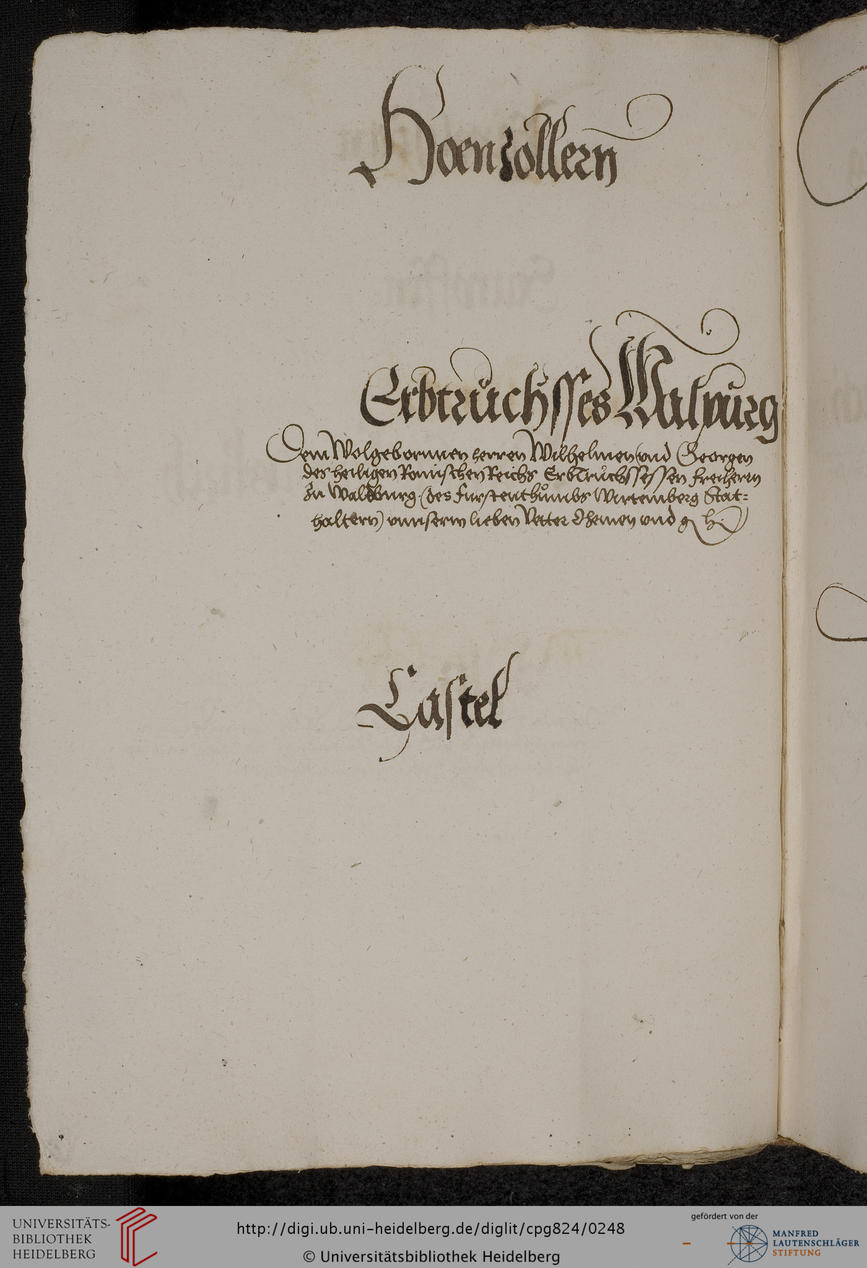 Hoenzollern
Erbtruchsses Walpurg
Dem Wolgebornnen herren Wilhelmen und Georgen
des heiligen Romischen Reichs Erbtruchssessen freiherrn
zu Waldburg (des furstenthumbs Wirtemberg Stat=
haltern) unnserm lieben Vetter Ohemen und g h.
Castel
UNIVERSITÄTS-
BIBLIOTHEK
HEIDELBERG
http://digi.ub.uni-heidelberg.de/diglit/cpg824/0248
© Universitätsbibliothek Heidelberg
gefördert von der
MANFRED
LAUTENSCHLÄGER
STIFTUNG